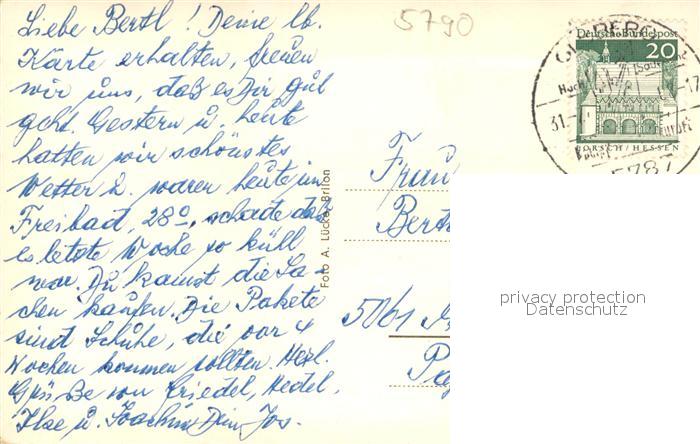 Liebe Bertl! Deine lb.
Karte erhalten, freuen
wir uns, daß es Dir gut
geht. Gestern u. heute
hatten wir schönstes
Wetter u. waren heute im
Freibad, 28°, schade daß
es letzte Woche so kühl
war. Du kannst die Sa-
chen kaufen. Die Pakete
sind Schuhe, die vor 4
Wochen kommen sollten. Herzl.
Grüße von Friedel, Hedel,
Ilse u. Joachim Dein Jos.
5790
Deutsche Bundespost
20
LORSCH/HESSEN
31.
5787
Foto A. Lücke, Brilon
Frau
5061
privacy protection
Datenschutz